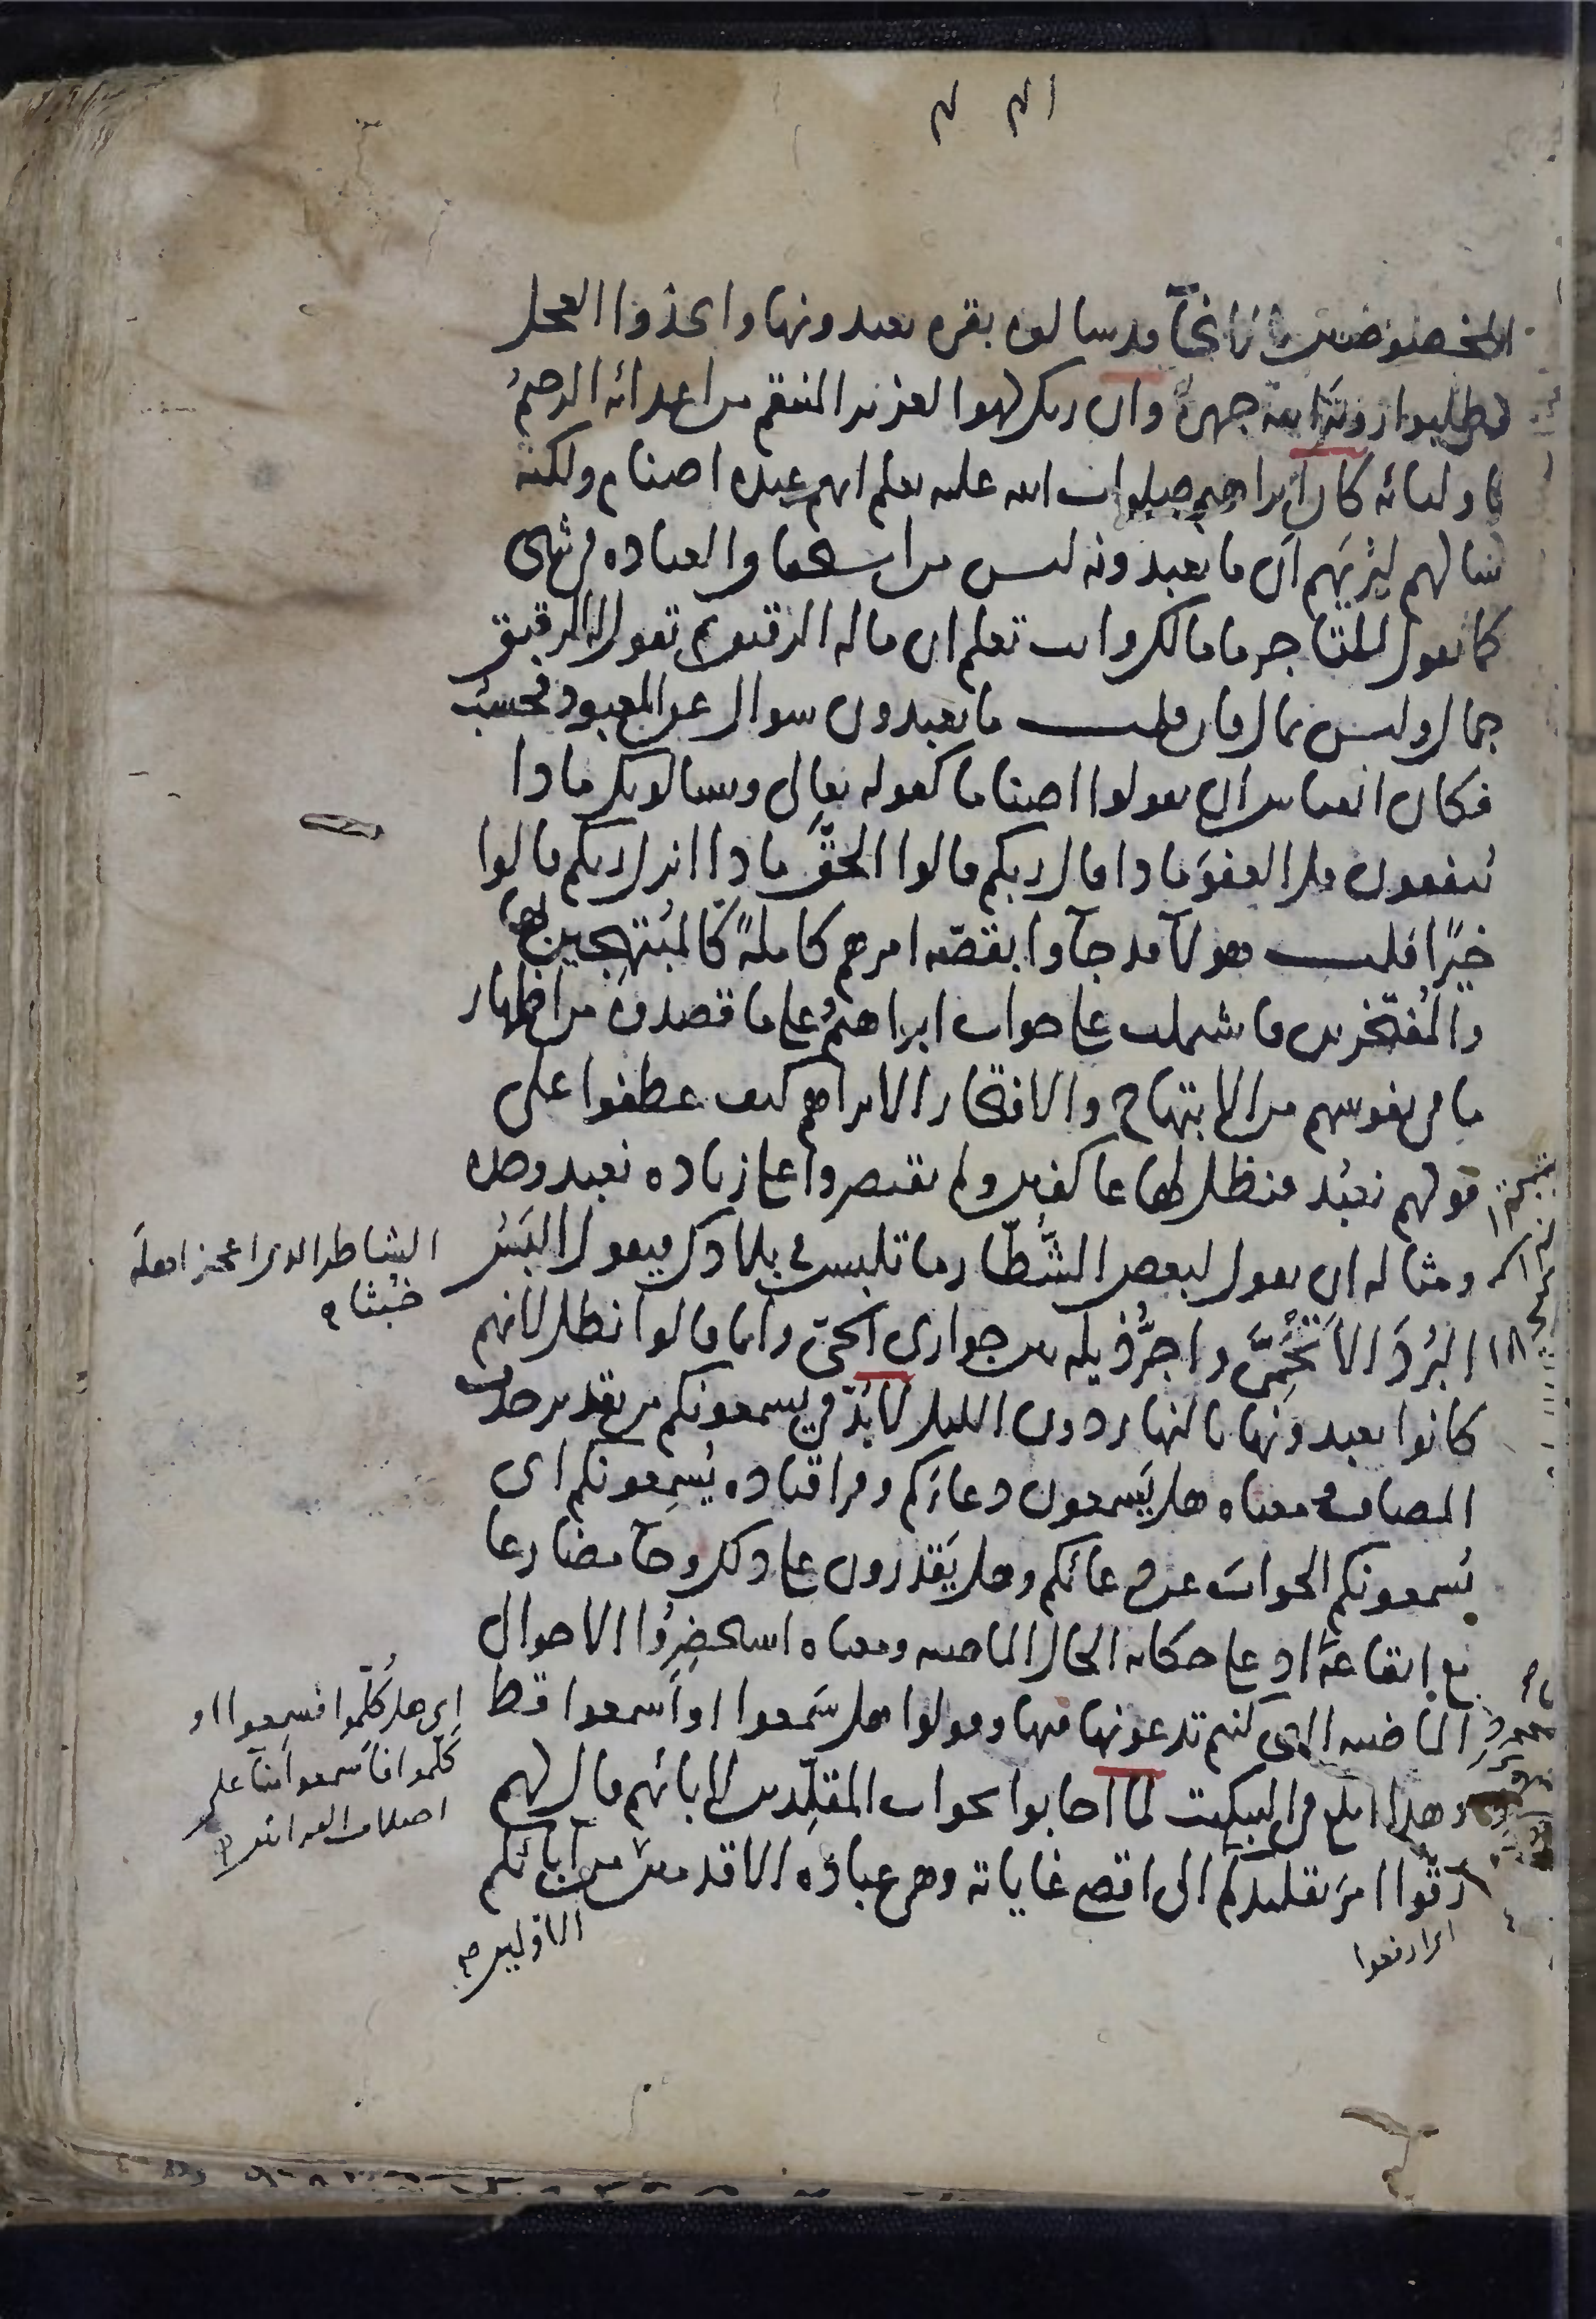 المخصوصين بالانجآ قد سالوه بقره يعبدونها واتخذوا العجل
وطلبوا رؤية الله جهرة وان ربك لهو العزيز المنتقم من اعدائه الرحيم
باوليائه كان ابراهيم صلوات الله عليه يعلم انهم عبدة اصنام ولكنه
سالهم ليريهم ان ما يعبدونه ليس من استحقاق العباده في شي
كما تقول للتاجر ما مالك وانت تعلم ان ماله الرقيق ثم تقول له الرقيق
جمال وليس بمال فان قلت ما تعبدون سوال عن المعبود فحسب
فكان القياس ان يقولوا اصناما كقوله تعالى ويسالونك ماذا
ينفقون قل العفو ماذا قال ربكم قالوا الحق ماذا انزل ربكم قالوا
خيرًا قلت هولآ قد جآوا بقصة امرهم كاملةً كالمبتهجين بها
والمفتخرين فاشتملت على جواب ابراهيم وعلى ما قصدوه من اظهار
ما في نفوسهم من الابتهاج والافتخار الا تراهم كيف عطفوا على
قولهم نعبد فنظل لها عاكفين ولم يقتصروا على زيادة نعبد وحده
ومثاله ان تقول لبعض الشُّطّار ما تلبس في بلادك فيقول البس
الشاطر الذى اعجز اهله
خبثا
البُرْدَ الاَتْحَمِيَّ واجرُّ ذيله بين جوارى الحى وانما قالوا نظل لانهم
كانوا يعبدونها بالنهار دون الليل لابد في يسمعونكم من تقدير حذف
المضاف معناه هل يَسمعون دعاءكم وقرا قتاده يُسمِعونكم اى
يُسمعونكم الجواب عن دعائكم وهل يَقدرون على ذلك وجآ مضارعا
مع ايقاعه في اذ على حكاية الحال الماضيه ومعناه استحضِرُوا الاحوال
الماضيه التى كنتم تدعونها فيها وقولوا هل سَمعوا او اَسمعوا قط
اى هل كُلّموا فسمعوا او
كلموا فاسمعوا
وهذا ابلغ في التبكيت لما اجابوا بجواب المقلِّدين لابائهم قال لهم
رَقّوا امر تقليدكم الى اقصى غاياته وهى عبادة الاقدمين من آبائكم
اى ارفعوا
الاوّلين